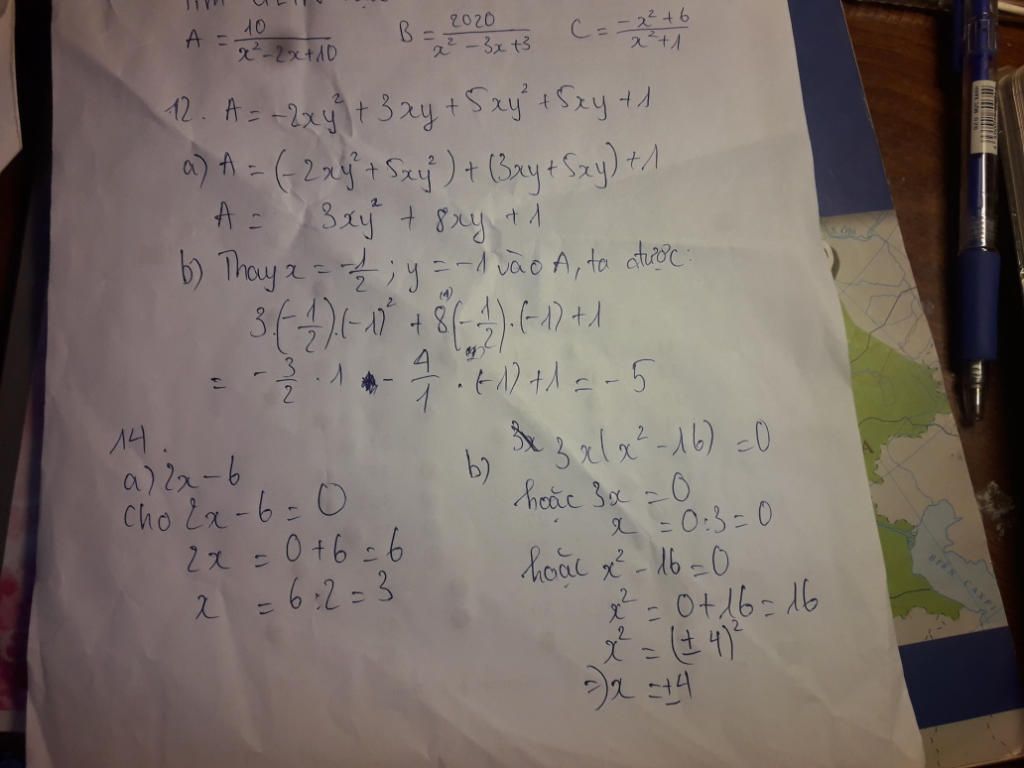 A = 10/(x² - 2x + 10) B = 2020/(x² - 3x + 3) C = (-x² + 6)/(x² + 1)
12. A = -2xy² + 3xy + 5xy² + 5xy + 1
a) A = (-2xy² + 5xy²) + (3xy + 5xy) + 1
A = 3xy² + 8xy + 1
b) Thay x = -1/2 ; y = -1 vào A, ta được:
3(-1/2).(-1)² + 8(-1/2).(-1) + 1
= -3/2 . 1 - 4/1 . (-1) + 1 = -5
14.
a) 2x - 6
Cho 2x - 6 = 0
2x = 0 + 6 = 6
x = 6 : 2 = 3
b) 3x(x² - 16) = 0
hoặc 3x = 0
x = 0 : 3 = 0
hoặc x² - 16 = 0
x² = 0 + 16 = 16
x² = (± 4)²
=> x = ±4